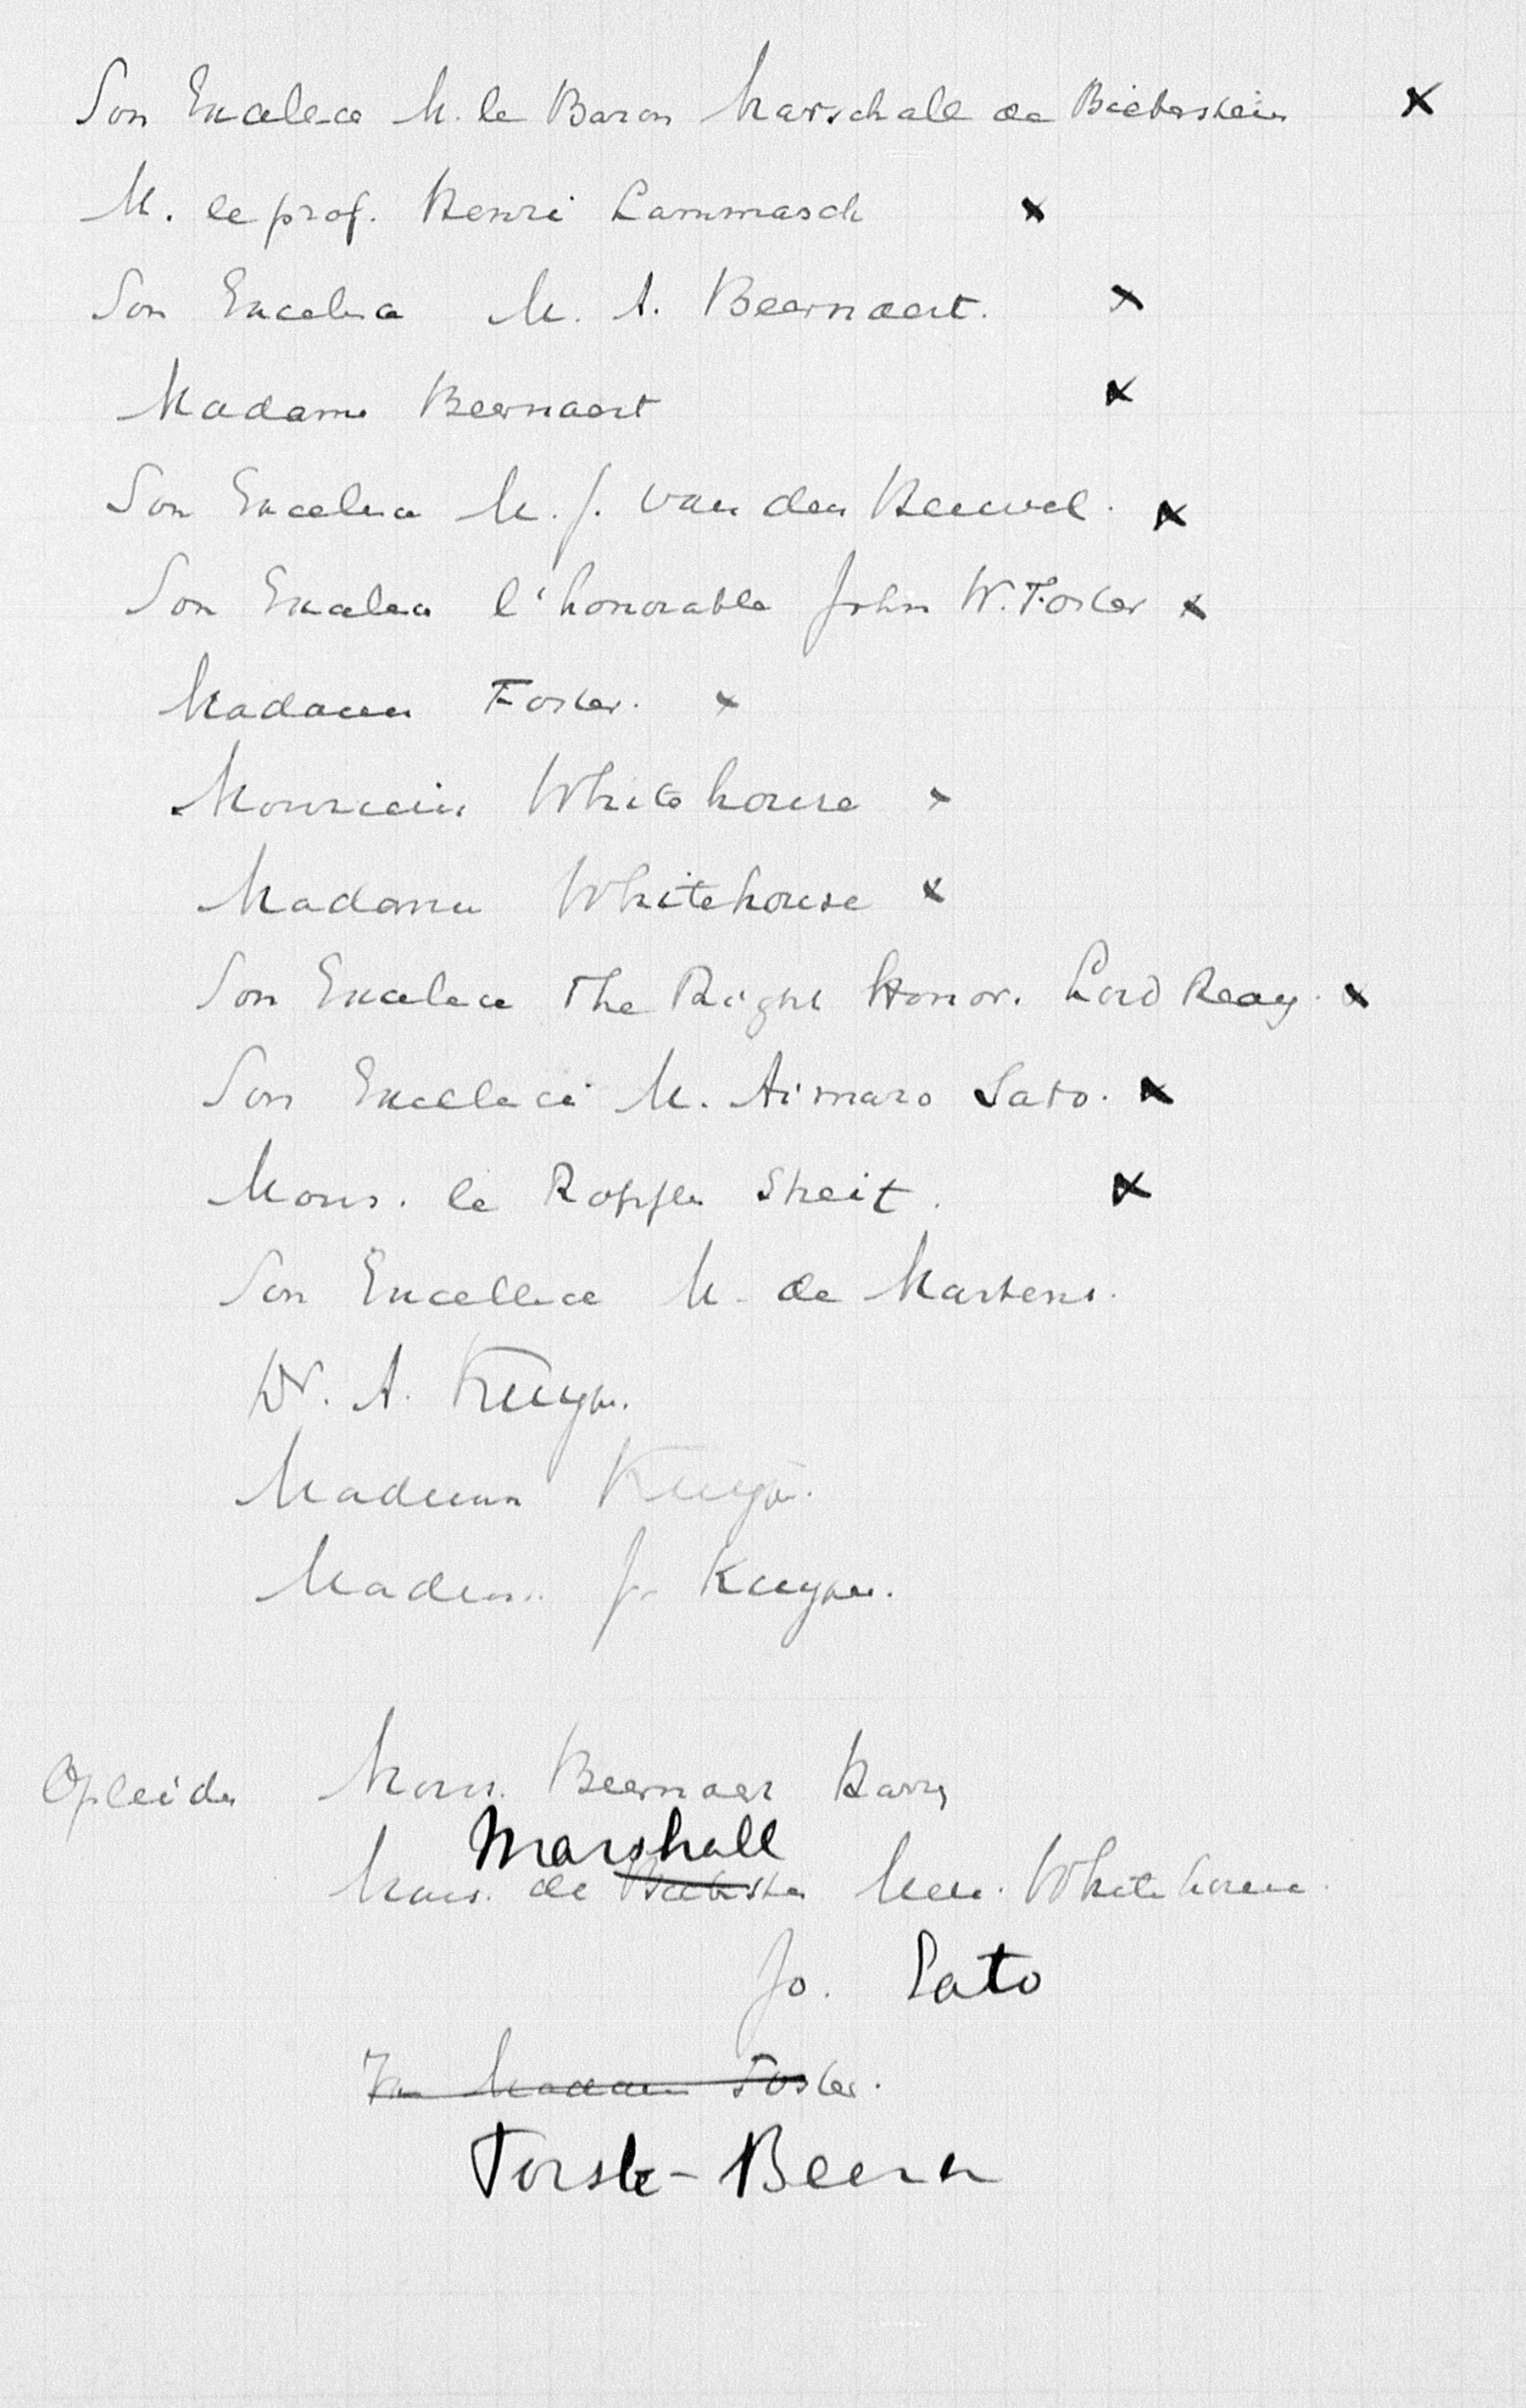 Son Excellence M. le Baron Marschall de Bieberstein x
M. le prof. Henri Lammasch x
Son Excellence M. A. Beernaert. x
Madame Beernaert x
Son Excellence M. J. van den Heuvel. x
Son Excellence l'honorable John W. Foster x
Madame Foster. x
Monsieur Whitehouse x
Madame Whitehouse x
Son Excellence The Right Honor. Lord Reay. x
Son Excellence M. Aimaro Sato. x
Mons. le Streit. x
Son Excellence M. de Martens.
Dr. A. Kuyper.
Madame Kuyper.
Madem. J. Kuyper.
Opleiden Mons. Beernaert Harry
Marshall
Mons. de Mevr. Whitehouse.
Jo. Sato
Madame Foster.